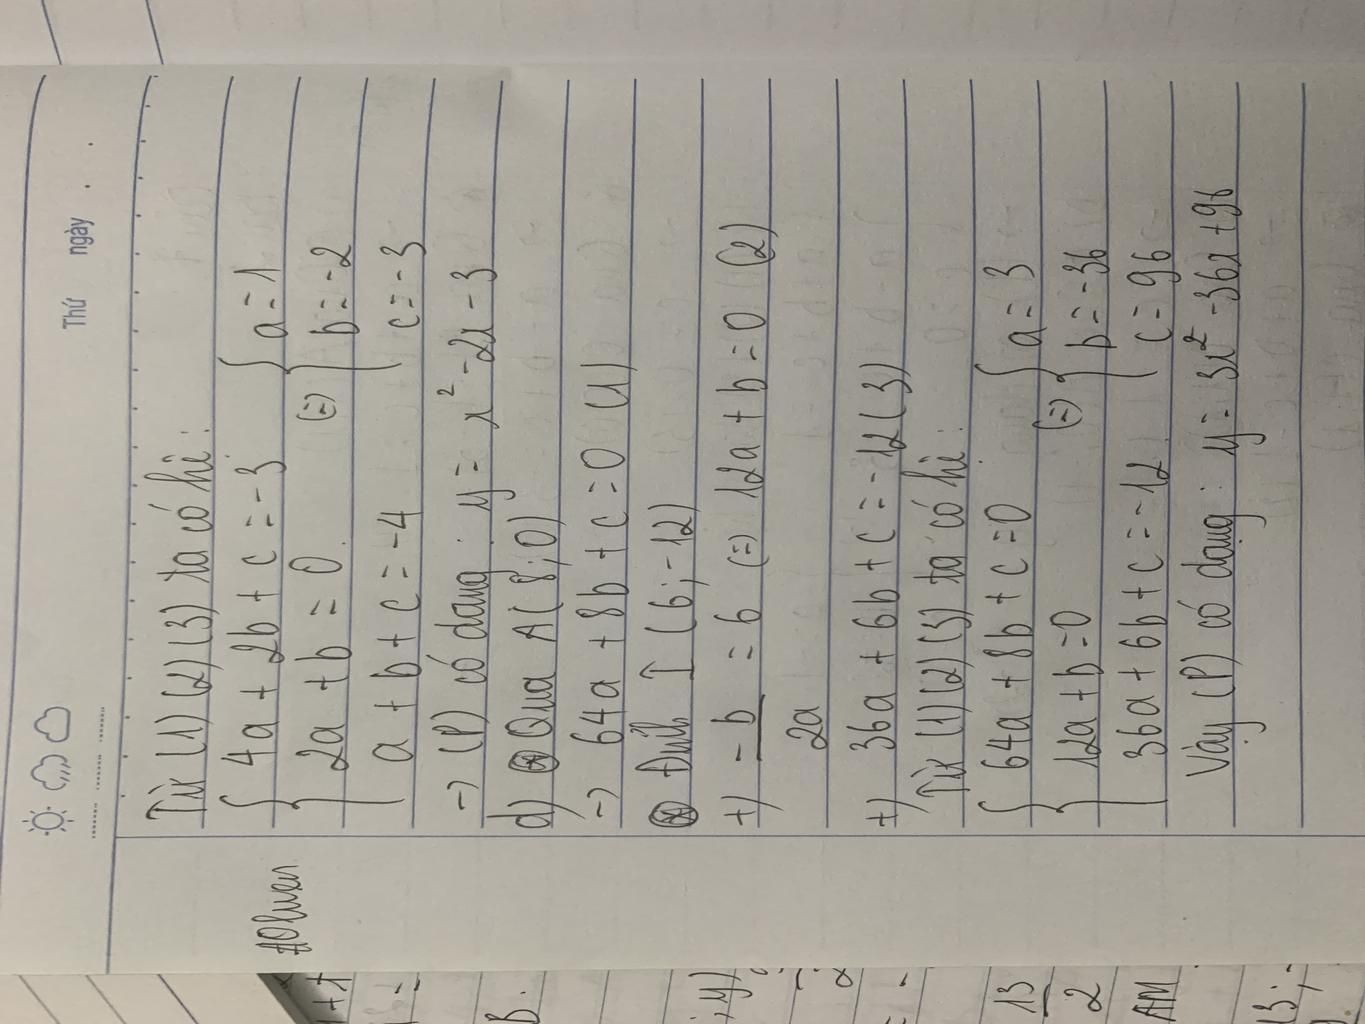 Thứ ngày
Từ (1) (2) (3) ta có hệ:
4a + 2b + c = -3
2a + b = 0
a + b + c = -4
(=)
a = 1
b = -2
c = -3
-> (P) có dạng: y = x² - 2x - 3
d) Qua A(8; 0)
-> 64a + 8b + c = 0 (1)
Đỉnh I (6; -12)
+) -b/2a = 6 (=) 12a + b = 0 (2)
+) 36a + 6b + c = -12 (3)
Từ (1) (2) (3) ta có hệ:
64a + 8b + c = 0
12a + b = 0
36a + 6b + c = -12
(=)
a = 3
b = -36
c = 96
Vậy (P) có dạng: y = 3x² - 36x + 96
13
2
AM